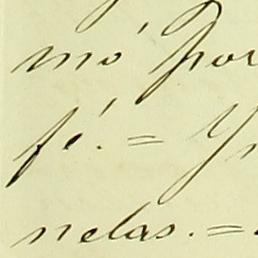 mó por
fé. =
nelas. =